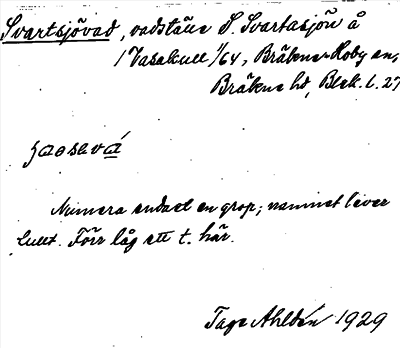 Svartsjövad, vadställe S. Svartasjön å
1 Vasakull 1/64, Bräkne-Hoby sn,
Bräkne hd, Blek. l. 27
Numera endast en grop; namnet lever
kullt. Förr låg ett t. här.
Tage Ahldén 1929